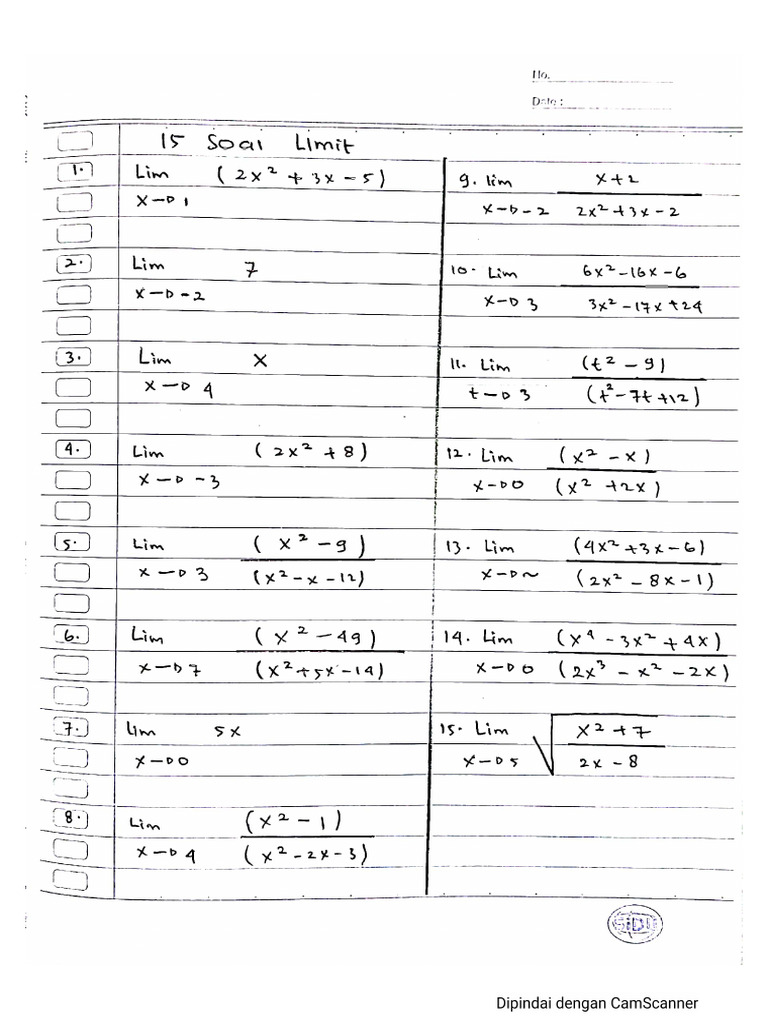 No.
Date :
15 Soal Limit
1. Lim (2x² + 3x - 5)
x→1
2. Lim 7
x→-2
3. Lim x
x→4
4. Lim (2x² + 8)
x→-3
5. Lim (x² - 9)
x→3 (x² - x - 12)
6. Lim (x² - 49)
x→7 (x² + 5x - 14)
7. Lim 5x
x→0
8. Lim (x² - 1)
x→4 (x² - 2x - 3)
9. lim x + 2
x→-2 2x² + 3x - 2
10. Lim 6x² - 16x - 6
x→3 3x² - 17x + 24
11. Lim (t² - 9)
t→3 (t² - 7t + 12)
12. Lim (x² - x)
x→0 (x² + 2x)
13. Lim (4x² + 3x - 6)
x→~ (2x² - 8x - 1)
14. Lim (x⁴ - 3x² + 4x)
x→0 (2x³ - x² - 2x)
15. Lim √ x² + 7
x→5 2x - 8
SiDU
Dipindai dengan CamScanner